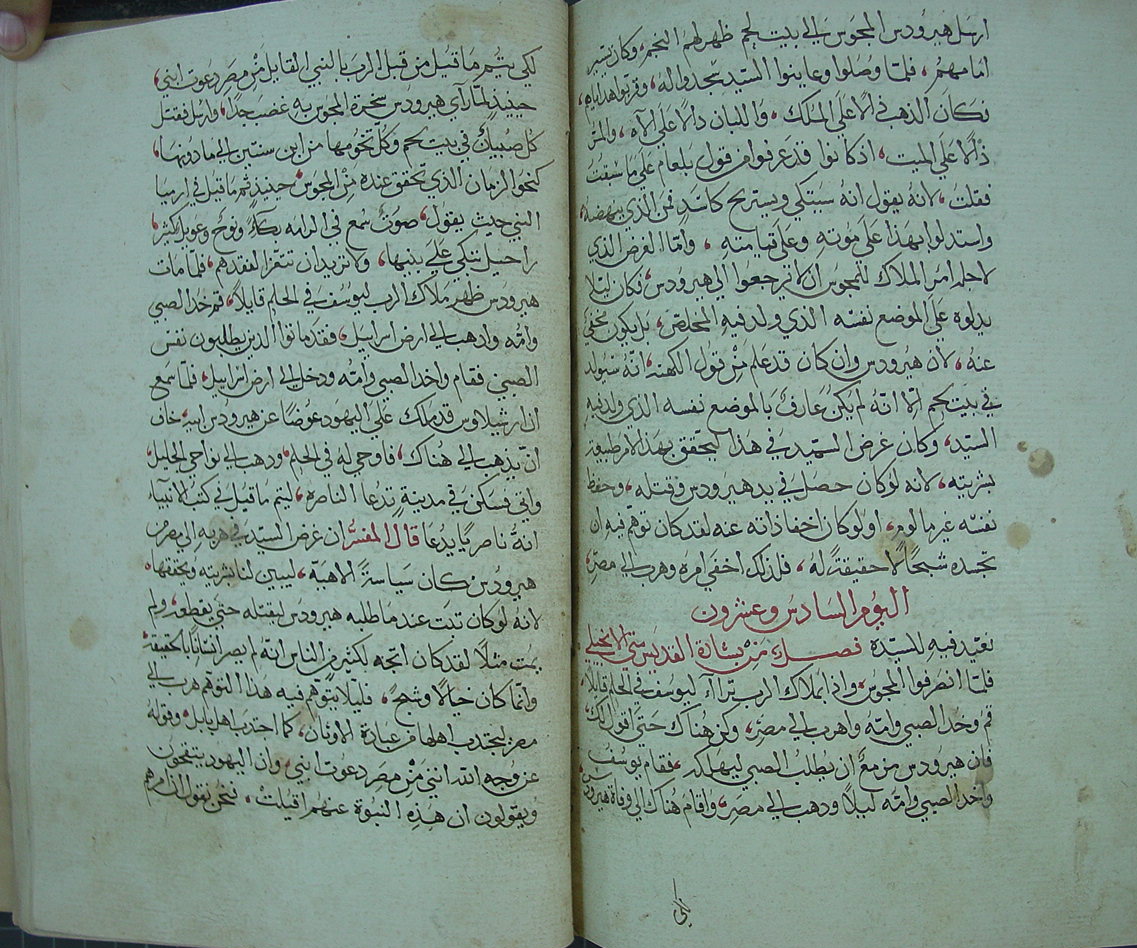 ارسل هيرودس المجوس الي بيت لحم ظهر لهم النجم، وكان يسير
امامهم، فلما وصلوا وعاينوا السيد سجدوا له، وقربوا هداياهم،
فكان الذهب دالا على الملك، واللبان دالا على الاه، والمر
دالا على الميت، اذ كانوا قد عرفوا من قول بلعام على ما سبقت
فقلت، لانه يقول انه سيتكي ويستريح كاسد فمن الذي ينهضه
واستدلوا بهذا على موته وعلى قيامته، واما الغرض الذي
لاجله امر الملاك للمجوس ان لا يرجعوا الي هيرودس، فكان ليلا
يدلوه على الموضع نفسه الذي ولد فيه المخلص، بل يكون مخفي
عنه، لان هيرودس وان كان قد علم من قول الكهنة، انه سيولد
في بيت لحم الا انه لم يكن عارف بالموضع نفسه الذي ولد فيه
السيد، وكان غرض السيد في هذا ليحقق بهذا الامر طبيعة
بشريته، لانه لو كان حصل في يد هيرودس وقتله، وحفظ
نفسه غير مالوم، او لو كان اخفا ذاته عنه لقد كان توهم فيه ان
تجسده شبحا لا حقيقة له، فلذلك اخفي امره وهرب الي مصر،
اليوم السادس وعشرون
نعيد فيه للسيدة فصل من بشارة القديس متي الانجيلي
فلما انصرفوا المجوس، واذا بملاك الرب ترااي ليوسف في الحلم قايلا،
قم وخد الصبي وامه واهرب الي مصر، وكن هناك حتى اقول لك،
فان هيرودس مزمع ان يطلب الصبي ليهلكه، فقام يوسف
واخد الصبي وامه ليلا ودهب الي مصر، واقام هناك الي وفاة هيرودس
لكي
لكي يتم ما قيل من قبل الرب بالنبي القايل من مصر دعوت ابني،
حينيد لما راي هيرودس سخرة المجوس به غضب جدا، وارسل فقتل
كل صبيان في بيت لحم وكل تخومها من ابن سنتين الي ما دونها،
كنحو الزمان الذي تحقق عنده من المجوس، حينيد تم ما قيل في ارميا
النبي حيث يقول، صوت سمع في الرامه بكاء ونوح وعويل كثير،
راحيل تبكي على بنيها، ولا تريد ان تتعزا لفقدهم، فلما مات
هيرودس ظهر ملاك الرب ليوسف في الحلم قايلا، قم خد الصبي
وامه وادهب الي ارض اسراييل، فقد ماتوا الذين يطلبون نفس
الصبي فقام واخد الصبي وامه ودخل الي ارض اسراييل، فلما سمع
ان ارشيلاوس قد ملك علي اليهود عوضا عن هيرودس ابيه خاف
ان يذهب الي هناك، فاوحي له في الحلم، ودهب الي نواحي الجليل،
واتي فسكن في مدينة تدعا الناصره، ليتم ما قيل في كتب الانبياء
انه ناصريا يدعا قال المفسر ان غرض السيد في هربه الي مصر من
هيرودس كان سياسة الاهية، ليبين لنا بشريته ويحققها،
لانه لو كان تبت عندما طلبه هيرودس ليقتله حتى يقطعه، ولم
يمت مثلا لقد كان اتجه لكثير من الناس انه لم يصر انسانا بالحقيقة،
وانما كان خيالا وشبح، فليلا يتوهم فيه هذا التوهم هرب الي
مصر ليجتدب اهلها من عبادة الاوتان، كما اجتدب اهل بابل، وقوله
عز وجه الله انني من مصر دعوت ابني، وان اليهود يتقحون
ويقولون ان هذه النبوة عنهم اقيلت، فنحن نقول الذ امرهم